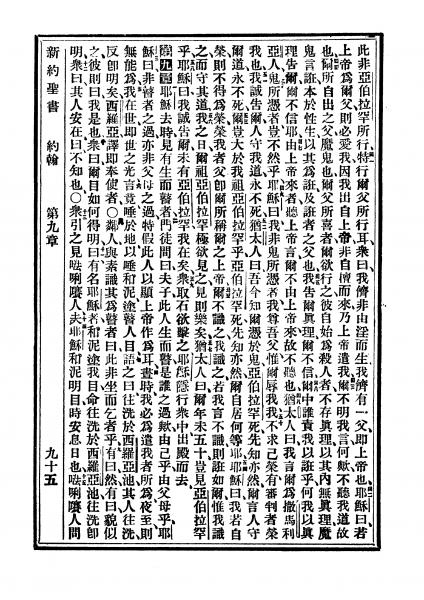 此非亞伯拉罕所行、特行爾父所行耳、衆曰、我儕非由淫而生、我儕有一父、即上帝也、耶穌曰、若
上帝爲爾父、則必愛我、因我出自上帝、非自擅而來、乃上帝遣我、爾不明我言何歟、不聽我道故
也、爾所自出之父、魔鬼也、爾父所喜者、爾欲行之、彼自始爲殺人者、不存眞理、以其內無眞理、魔
鬼言誑、本於性生、以其爲誑、及誑者之父也、我告爾眞理、爾不信、爾中誰責我以誑乎、何我以眞
理告爾、爾不信耶、由上帝來者、聽上帝言、爾不由上帝來、故不聽也、猶太人曰、我言爾爲撒馬利
亞人、鬼所憑者、豈不然乎、耶穌曰、我非鬼所憑者、我尊吾父、惟爾辱我、我不求己榮、有審判者榮
我也、我誠告爾、人守我道、永不死、猶太人曰、吾今知爾憑於鬼、亞伯拉罕死、先知亦然、爾言人守
爾道、永不死、爾豈大於我祖亞伯拉罕乎、亞伯拉罕死、先知亦然、爾自居何等、耶穌曰、我若自
榮、則不得爲榮、榮我者父、即爾所稱爾之上帝、爾不識之、我識之、若我言不識、則誑如爾、惟我識
之、而守其道、我之日、爾祖亞伯拉罕極欲見之、見則樂矣、猶太人曰、爾年未五十、豈見亞伯拉罕
乎、耶穌曰、我誠告爾、未有亞伯拉罕、我在矣、衆取石欲擊之、耶穌隱、行衆中、出殿而去、
第九章 耶穌去時、見有生而瞽者、門徒問曰、夫子、此人生而瞽、是誰之過歟、由己乎、由父母乎、耶
穌曰、非瞽者之過、亦非父母之過、特假此人、以顯上帝作爲耳、晝時、我必爲遣我者所爲、夜至、則
無能爲、我在世、即世之光、言竟、唾於地、以唾和泥、塗瞽人目、語之曰、往洗於西羅亞池、其人往洗、
反即明矣、西羅亞譯即奉使者○鄰人與素識其爲瞽者曰、此非坐而乞者乎、有曰然、有曰貌似
之、彼則曰、我是也、衆曰、爾目如何得明、曰、有名耶穌者、和泥塗我目、命往洗於西羅亞池、往洗即
明、衆曰、其人安在、曰、不知也○衆引之見𠵽唎㘔人、夫耶穌和泥明目時、安息日也、𠵽唎㘔人問
新約聖書 約翰 第九章 九十五